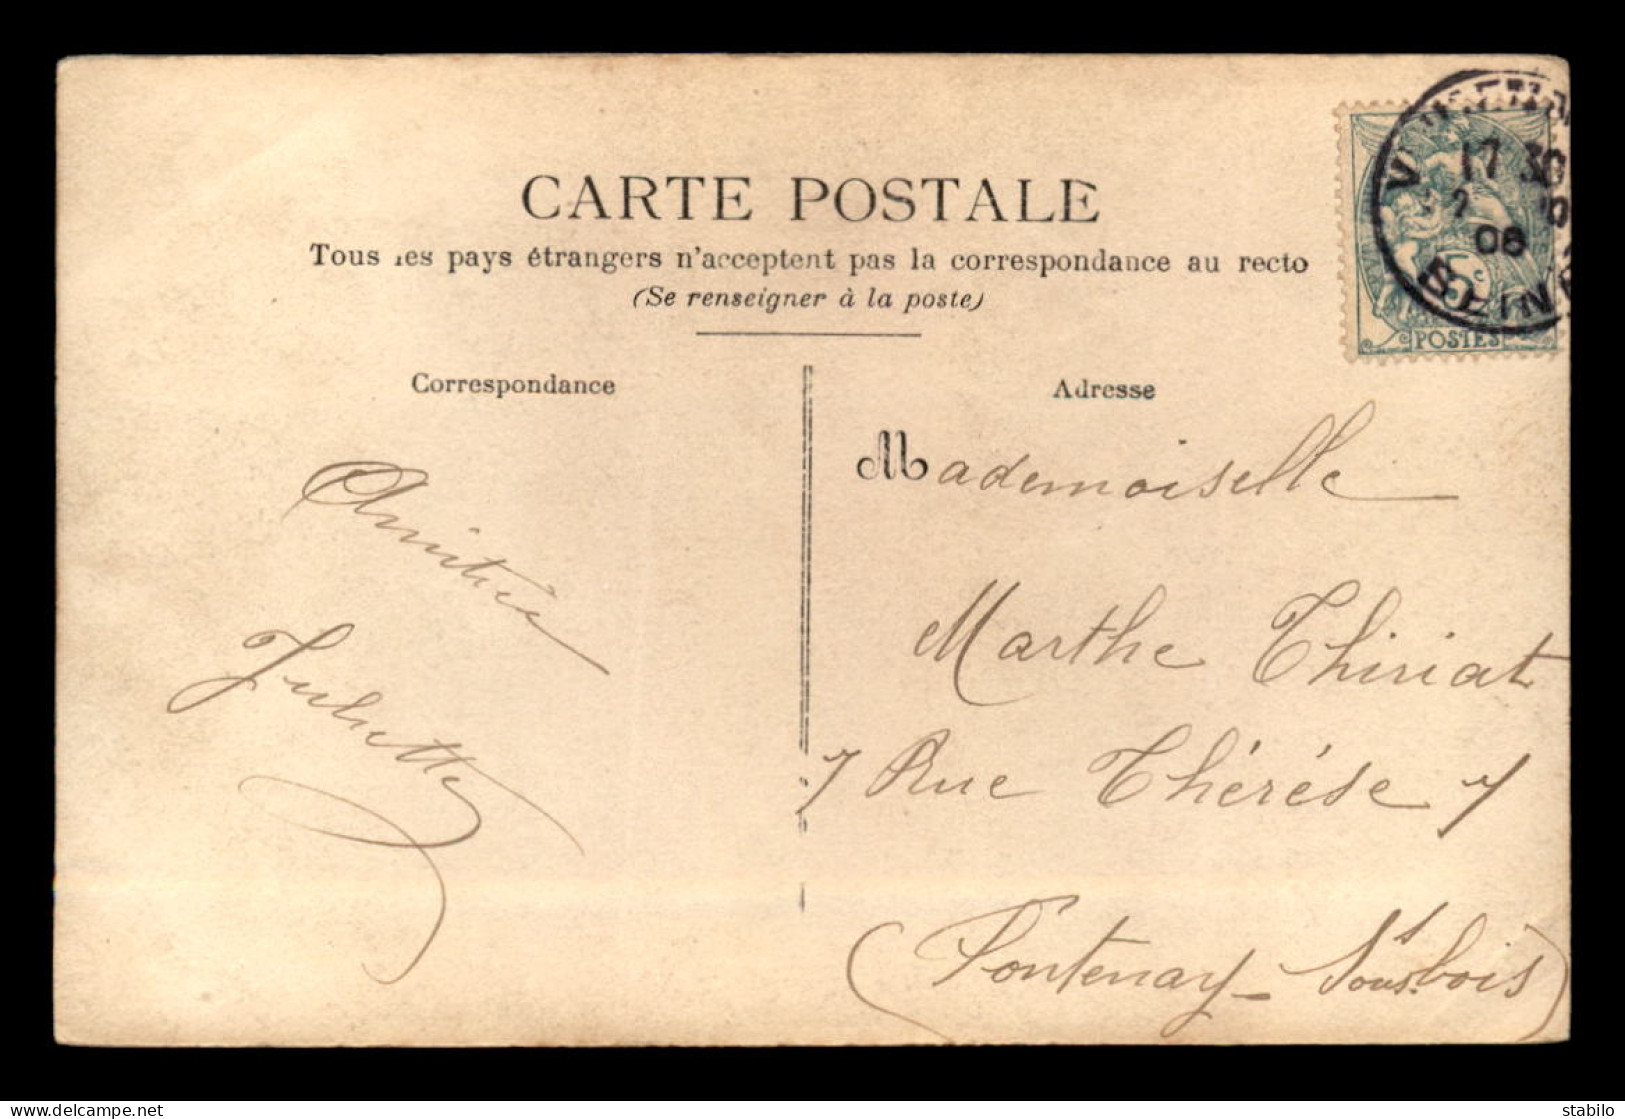 CARTE POSTALE
Tous les pays étrangers n'acceptent pas la correspondance au recto
(Se renseigner à la poste)
Correspondance
Amitiés
Juliette
Adresse
Mademoiselle
Marthe Thiriat
7 Rue Thérèse 7
(Fontenay-Sous-bois)
17 30
2
06
SEINE
5c
POSTES
delcampe.net
stabilo